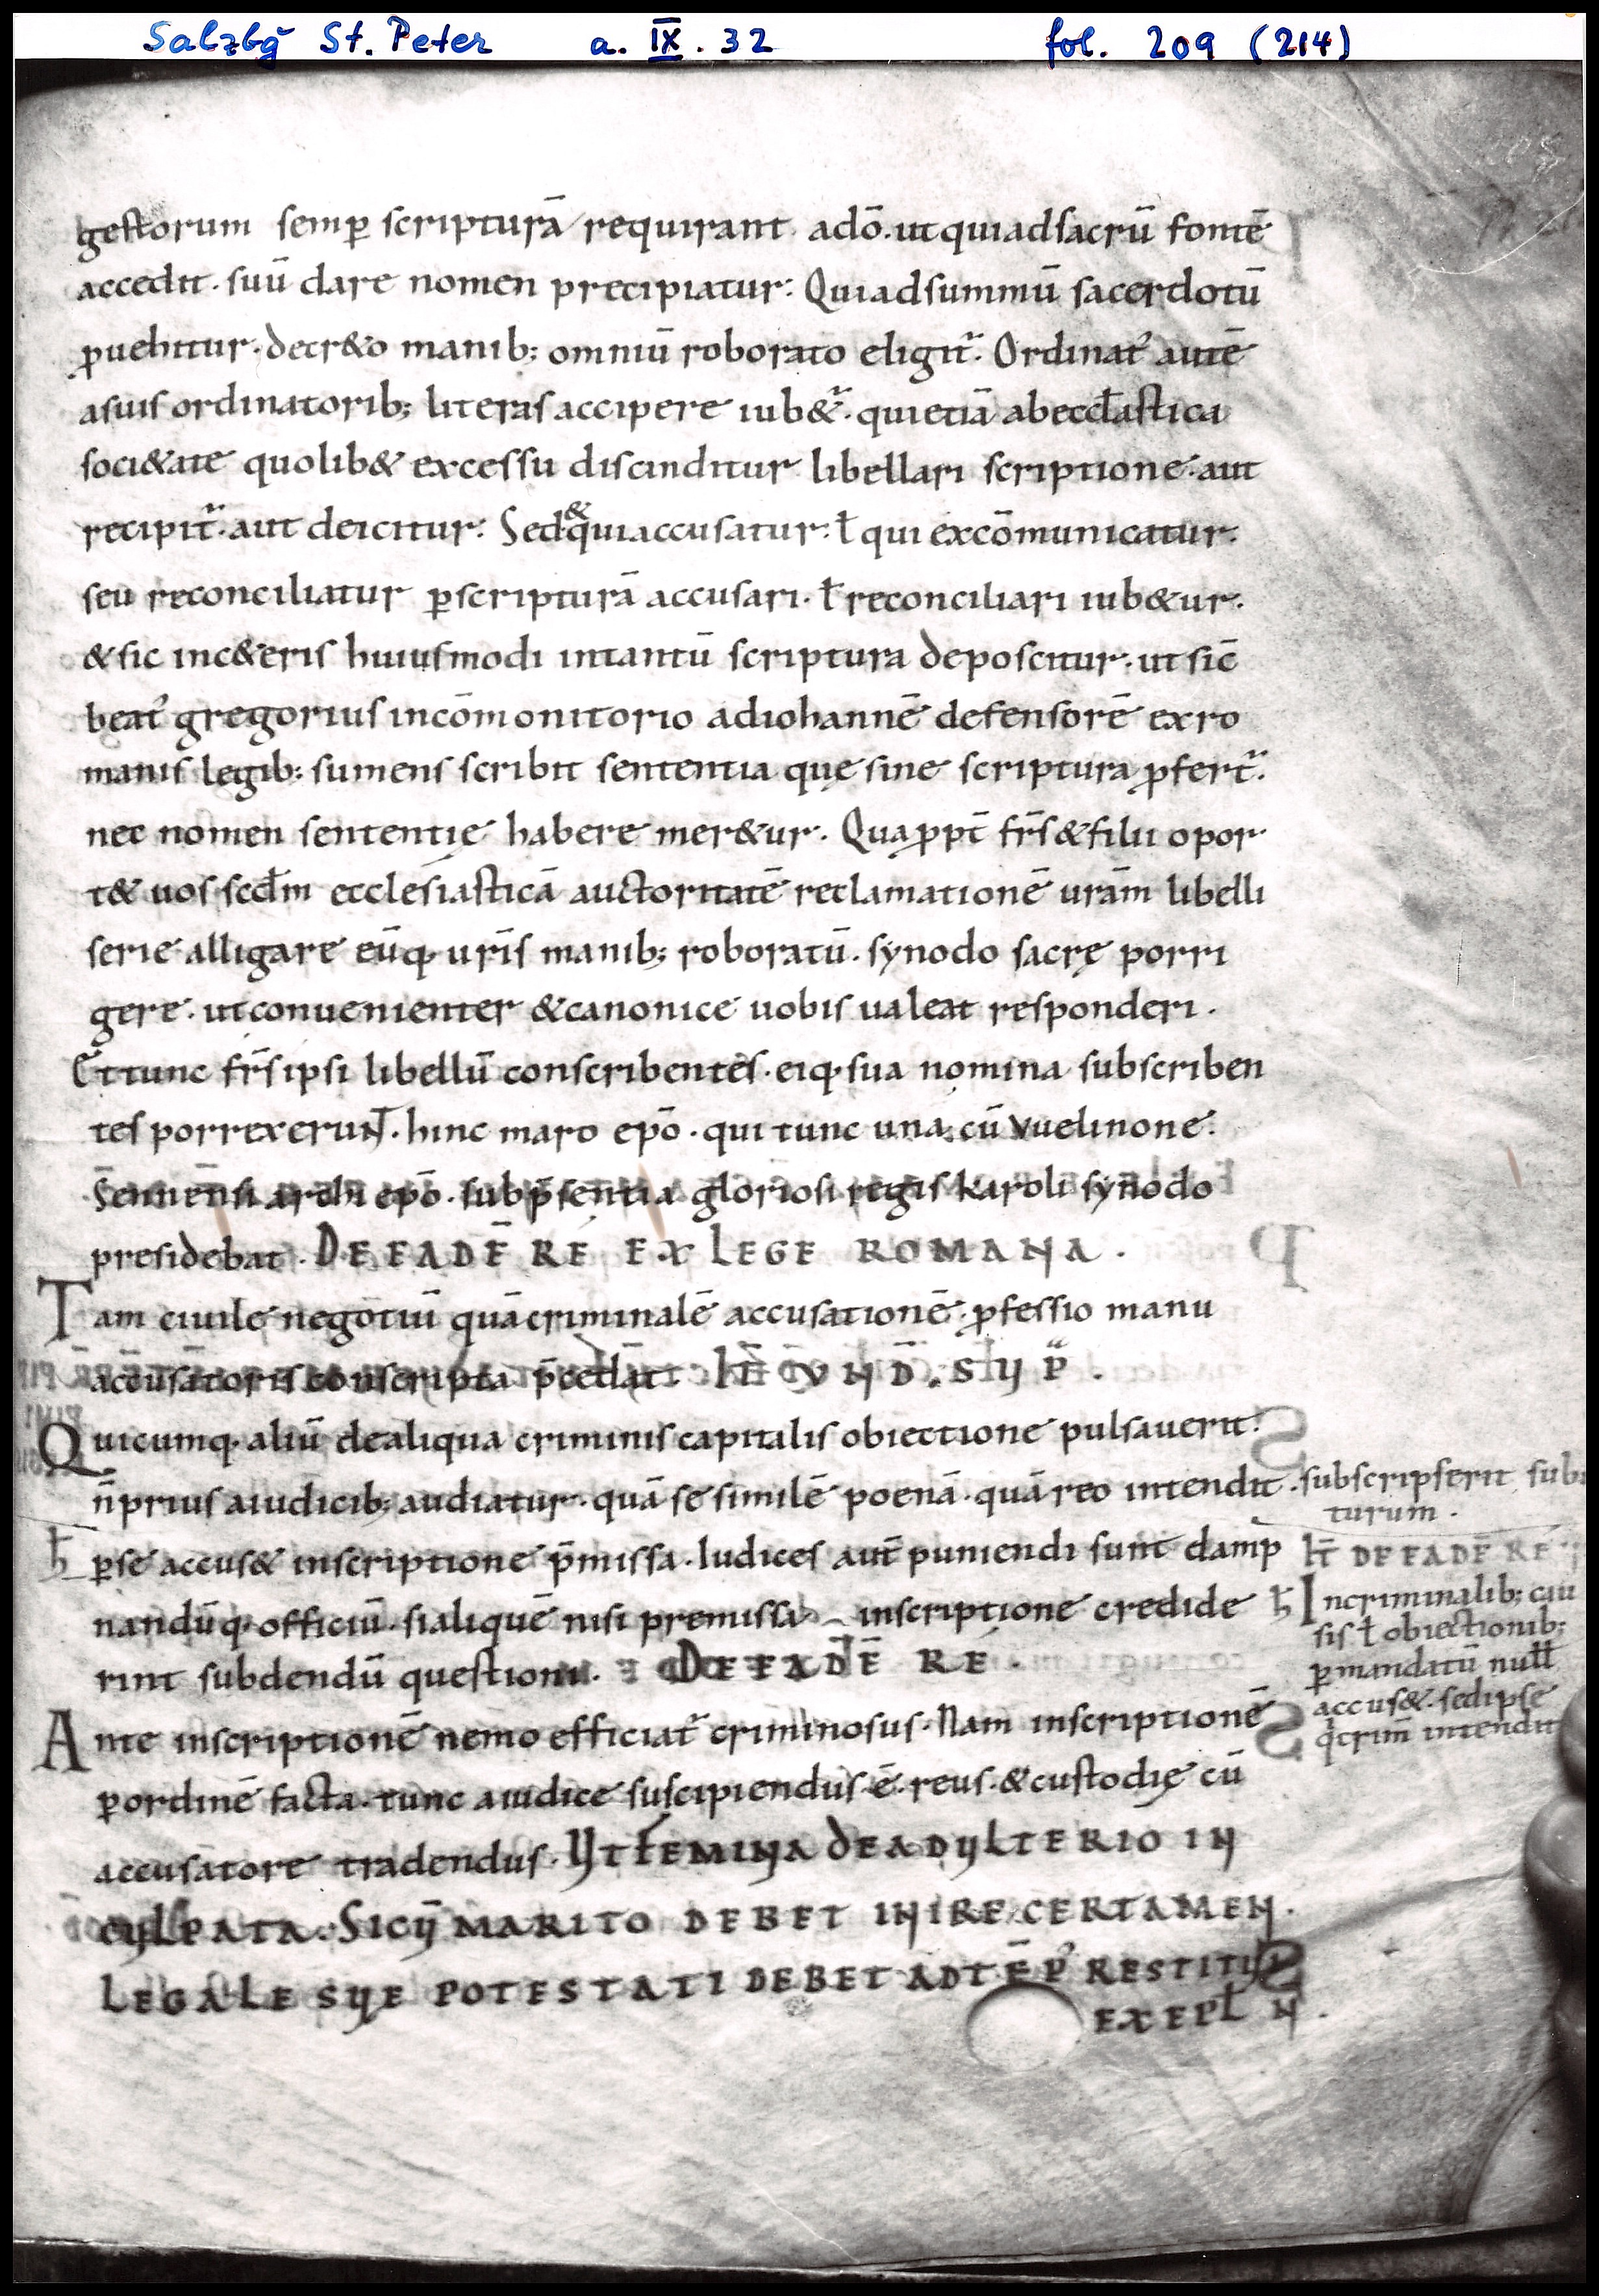 Salzbg̃ St. Peter a. IX. 32 fol. 209 (214)
gestorum semꝑ scripturā requirant. adō. ut qui ad sacrū fontē
accedit. suū dare nomen precipiatur: Qui ad summū sacerdotū
ꝓuehitur. decr&o manib; omniū roborato eligit᷑. Ordinat' autē
a suis ordinatorib; literas accipere iub&᷑. qui etiā ab eccl̄astica
soci&ate quolib& excessu discinditur libellari scriptione. aut
recipit᷑. aut deicitur: Sed & qui accusatur: ł qui excōmunicatur.
seu reconciliatur ꝑ scripturā accusari. ł reconciliari iub&ur.
& sic in c&eris huiusmodi intantū scriptura deposcitur. ut sic̄
beat' gregorius in cōmonitorio ad iohannē defensorē ex ro
manis legib; sumens scribit sententia quę sine scriptura ꝓfert᷑.
nec nomen sententię habere mer&ur. Quaꝓpt̄ fr̄s & filii opor
t& uos scd̄m ecclesiasticā auctoritatē reclamationē ur̄am libelli
serie alligare eūq; ur̄is manib; roboratū. synodo sacrę porri
gere. ut conuenienter & canonice uobis ualeat responderi.
Et tunc fr̄s ipsi libellū conscribentes. eiq; sua nomina subscriben
tes porrexerunt. hinc maro ep̄o. qui tunc una cū vuelinone.
Sennensi archi ep̄o. sub p̄sentia gloriosi regis karoli synodo
presidebat. DE EADĒ RE EX LEGE ROMANA.
Tam ciuile negotiū quā criminalē accusationē. ꝓfessio manu
accusatoris conscripta p̄cedat. IT̄ UND̄. SUP̄.
Quicumq; aliū de aliqua criminis capitalis obiectione pulsauerit:
n̄ prius a iudicib; audiatur. quā se similē poenā. quā reo intendit. subscripserit sub
turum.
ꝑ se accus& inscriptione p̄missa. Iudices aut̄ puniendi sunt damp
nandūq; officiū. si aliquē nisi premissa inscriptione credide
rint subdendū questioni. DE EADĒ RE.
IT̄ DE EADĒ RE
In criminalib; cau
sis ł obiectionib;
ꝑ mandatū null̄
accus&. sed ipse
q̇ crim̄ intendit
Ante inscriptionē nemo efficiat᷑ criminosus. Nam inscriptionē
ꝑ ordinē facta. tunc a iudice suscipiendus ē. reus. & custodię cū
accusatore tradendus. UT FEMINA DE ADULTERIO IN
CULPATA. SI CŪ MARITO DEBET INIRE CERTAMEN.
LEGALE SUE POTESTATI DEBET AD TĒP' RESTITUI
EX EPL̄ N.